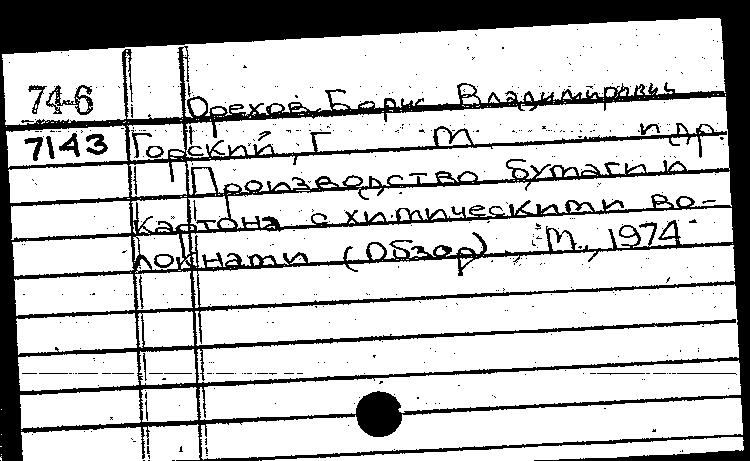 74-6 Орехов Борис Владимирович
7143 Горский, Г М и др.
Производство бумаги и
картона с химическими во-
локнами (Обзор)., М., 1974